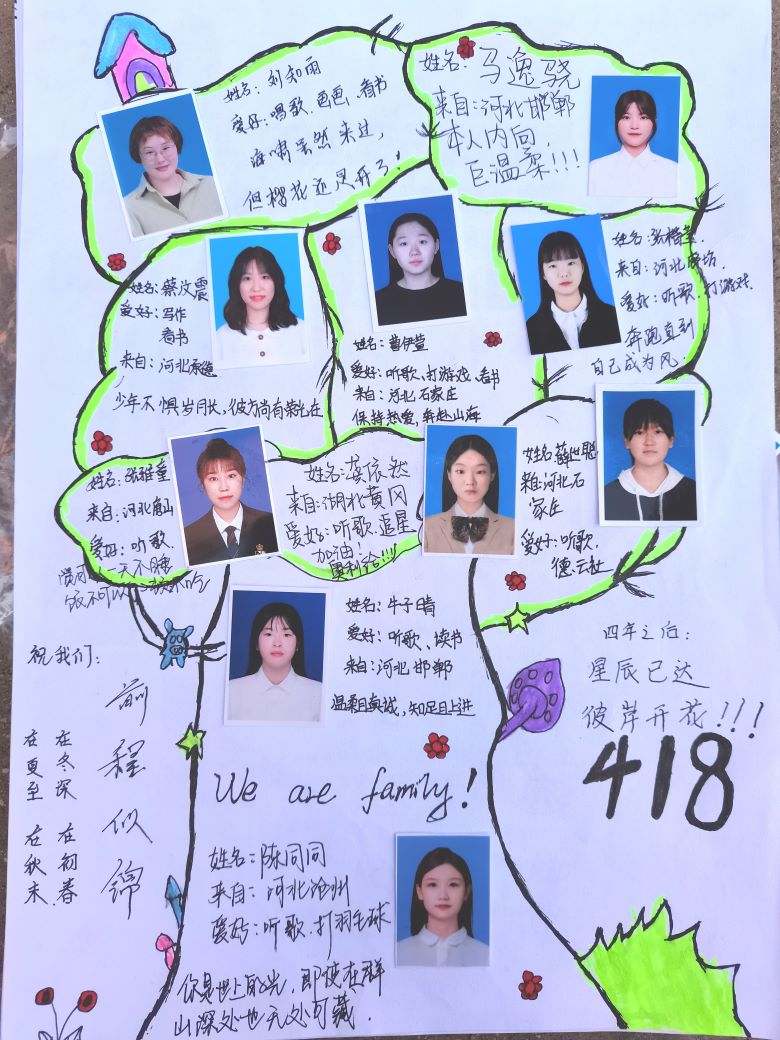 姓名：刘知雨
爱好：唱歌、芭芭、看书
海啸虽然来过，
但樱花还是开了！
姓名：马逸骁
来自：河北邯郸
本人内向，
巨温柔!!!
姓名：蔡汶震
爱好：写作
看书
来自：河北承德
少年不惧岁月长，彼方尚有荣光在
姓名：曹伊萱
爱好：听歌、打游戏、看书
来自：河北石家庄
保持热爱，奔赴山海
姓名：张楷
来自：河北廊坊
爱好：听歌、打游戏.
奔跑直到
自己成为风.
姓名：张雅
来自：河北唐山
爱好：听歌、
一天不睡
饭不可以
姓名：龚依然
来自：湖北黄冈
爱好：听歌、追星
加油！
奥利给!!!!
姓名：薛世聪
来自：河北石
家庄
爱好：听歌、
德云社
姓名：牛子晴
爱好：听歌、读书
来自：河北 邯郸
温柔且真诚，知足且上进
祝我们：
前
程
似
锦
在冬深
在夏至
在初春
在秋末
四年之后：
星辰已达
彼岸开花!!!
418
We are family!
姓名：陈同同
来自：河北沧州
爱好：听歌、打羽毛球
你是世上的光，即使在群
山深处也无处可藏.